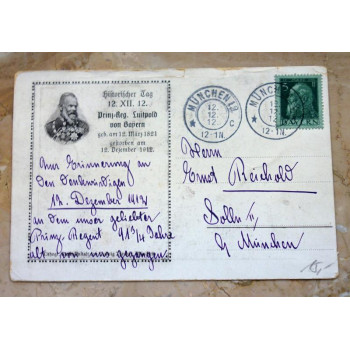 Historischer Tag
12. XII. 12.
Prinz-Reg. Luitpold
von Bayern
geb. am 12. März 1821
gestorben am
12. Dezember 1912.
Zur Erinnerung an
den denkwürdigen
12. Dezember 1912
in dem unser geliebter
Prinz Regent 91 3/4 Jahre
alt von uns gegangen.
MÜNCHEN
12.
12.
12
12-1N.
C
MÜNCHEN
12-1N.
5
BAYERN
Herrn
Ernst Reichold
Solln II
b/ München